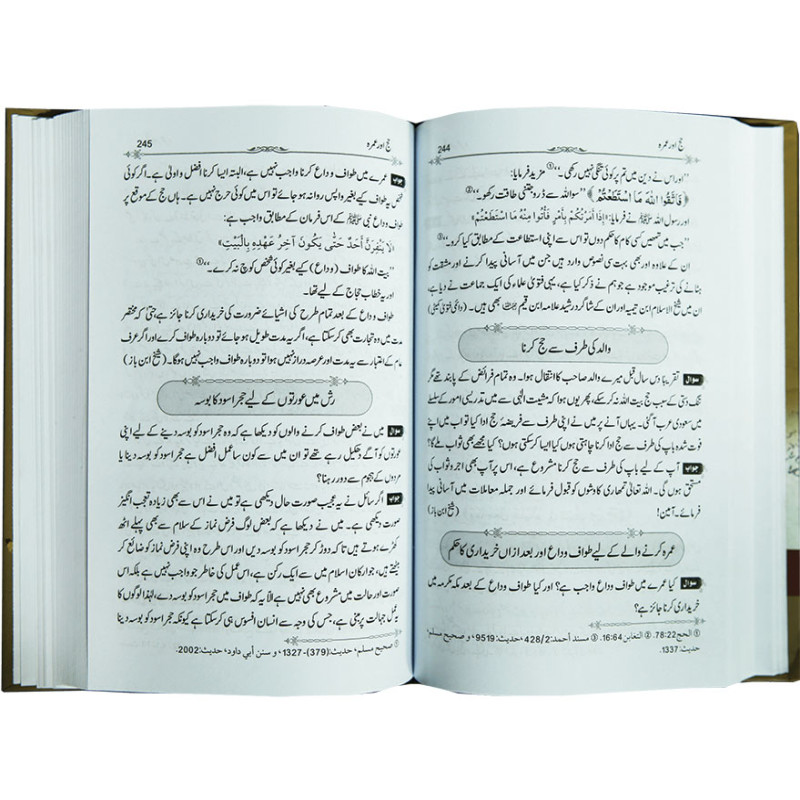 حج اور عمرہ 244
’’اور اس نے دین میں تم پر کوئی تنگی نہیں رکھی۔‘‘① مزید فرمایا:
﴿فَاتَّقُوا اللّٰهَ مَا اسْتَطَعْتُمْ﴾ ’’سو اللہ سے ڈرو جتنی طاقت رکھو۔‘‘②
اور رسول اللہ ﷺ نے فرمایا: «إِذَا أَمَرْتُكُمْ بِأَمْرٍ فَأْتُوا مِنْهُ مَا اسْتَطَعْتُمْ»
’’جب میں تمھیں کسی کام کا حکم دوں تو اس سے اپنی استطاعت کے مطابق کیا کرو۔‘‘③
ان کے علاوہ اور بھی بہت سی نصوص وارد ہیں جن میں آسانی پیدا کرنے اور مشقت کو
ہٹانے کی ترغیب موجود ہے جو ہم نے ذکر کیا ہے، یہی فتویٰ علماء کی ایک جماعت نے دیا ہے،
ان میں شیخ الاسلام ابن تیمیہ اور ان کے شاگرد رشید علامہ ابن قیم بھی ہیں۔ (دائمی فتویٰ کمیٹی)
والد کی طرف سے حج کرنا
سوال تقریباً دس سال قبل میرے والد صاحب کا انتقال ہوا۔ وہ تمام فرائض کے پابند تھے مگر
تنگ دستی کے سبب حج بیت اللہ نہ کر سکے، پھر یوں ہوا کہ مشیت الٰہی سے میں تدریسی امور کے سلسلے
میں سعودی عرب آ گئی۔ یہاں آنے پر میں نے اپنی طرف سے فریضۂ حج ادا کیا تو اب میں اپنے
فوت شدہ باپ کی طرف سے حج ادا کرنا چاہتی ہوں کیا ایسا کر سکتی ہوں؟ کیا مجھے بھی ثواب ملے گا؟
جواب آپ کے لیے باپ کی طرف سے حج کرنا مشروع ہے، اس پر آپ بھی اجر و ثواب کی
مستحق ہوں گی۔ اللہ تعالیٰ تمھاری کوششوں کو قبول فرمائے اور جملہ معاملات میں آسانی پیدا
فرمائے۔ آمین! (شیخ ابن باز)
عمرہ کرنے والے کے لیے طواف وداع اور بعد ازاں خریداری کا حکم
سوال کیا عمرے میں طواف وداع واجب ہے؟ اور کیا طواف وداع کے بعد مکہ مکرمہ میں
خریداری کرنا جائز ہے؟
① الحج 78:22. ② التغابن 16:64. ③ مسند أحمد: 428/2، حدیث: 9519، و صحیح مسلم،
حدیث: 1337.
حج اور عمرہ 245
جواب عمرے میں طواف وداع کرنا واجب نہیں ہے، البتہ ایسا کرنا افضل و اولیٰ ہے۔ اگر کوئی
شخص یہ طواف کیے بغیر واپس روانہ ہو جائے تو اس میں کوئی حرج نہیں ہے۔ ہاں حج کے موقع پر
طواف وداع نبی ﷺ کے اس فرمان کے مطابق واجب ہے:
«لَا يَنْفِرَنَّ أَحَدٌ حَتّٰى يَكُونَ آخِرُ عَهْدِهِ بِالْبَيْتِ»
’’بیت اللہ کا طواف (وداع) کیے بغیر کوئی شخص کوچ نہ کرے۔‘‘①
اور یہ خطاب حجاج کے لیے تھا۔
طواف وداع کے بعد تمام طرح کی اشیائے ضرورت کی خریداری کرنا جائز ہے حتیٰ کہ مختصر
مدت میں وہ تجارت بھی کر سکتا ہے، اگر یہ مدت طویل ہو جائے تو دوبارہ طواف کرے اور اگر عرف
عام کے اعتبار سے یہ مدت اور عرصہ دراز نہیں ہوا تو دوبارہ طواف واجب نہیں ہوگا۔ (شیخ ابن باز)
رش میں عورتوں کے لیے حجر اسود کا بوسہ
سوال میں نے بعض طواف کرنے والوں کو دیکھا ہے کہ وہ حجر اسود کو بوسہ دینے کے لیے اپنی
عورتوں کو آگے دھکیل رہے تھے تو ان میں سے کون سا عمل افضل ہے حجر اسود کو بوسہ دینا یا
مردوں کے ہجوم سے دور رہنا؟
جواب اگر سائل نے یہ عجیب صورت حال دیکھی ہے تو میں نے اس سے بھی زیادہ تعجب انگیز
صورت دیکھی ہے۔ میں نے دیکھا ہے کہ بعض لوگ فرض نماز کے سلام سے بھی پہلے اٹھ
کھڑے ہوتے ہیں تا کہ دوڑ کر حجر اسود کو بوسہ دیں اور اس طرح وہ اپنی فرض نماز کو ضائع کر
بیٹھتے ہیں، جو ارکان اسلام میں سے ایک رکن ہے، اس عمل کی خاطر جو واجب نہیں ہے بلکہ اس
صورت اور حالت میں مشروع بھی نہیں ہے الا یہ کہ طواف میں حجر اسود کو بوسہ دے، لہٰذا لوگوں کا
یہ عمل جہالت پر مبنی ہے، جس کی وجہ سے انسان افسوس ہی کر سکتا ہے کیونکہ حجر اسود کو بوسہ دینا
① صحیح مسلم، حدیث: (379)-1327، و سنن أبي داود، حدیث: 2002.